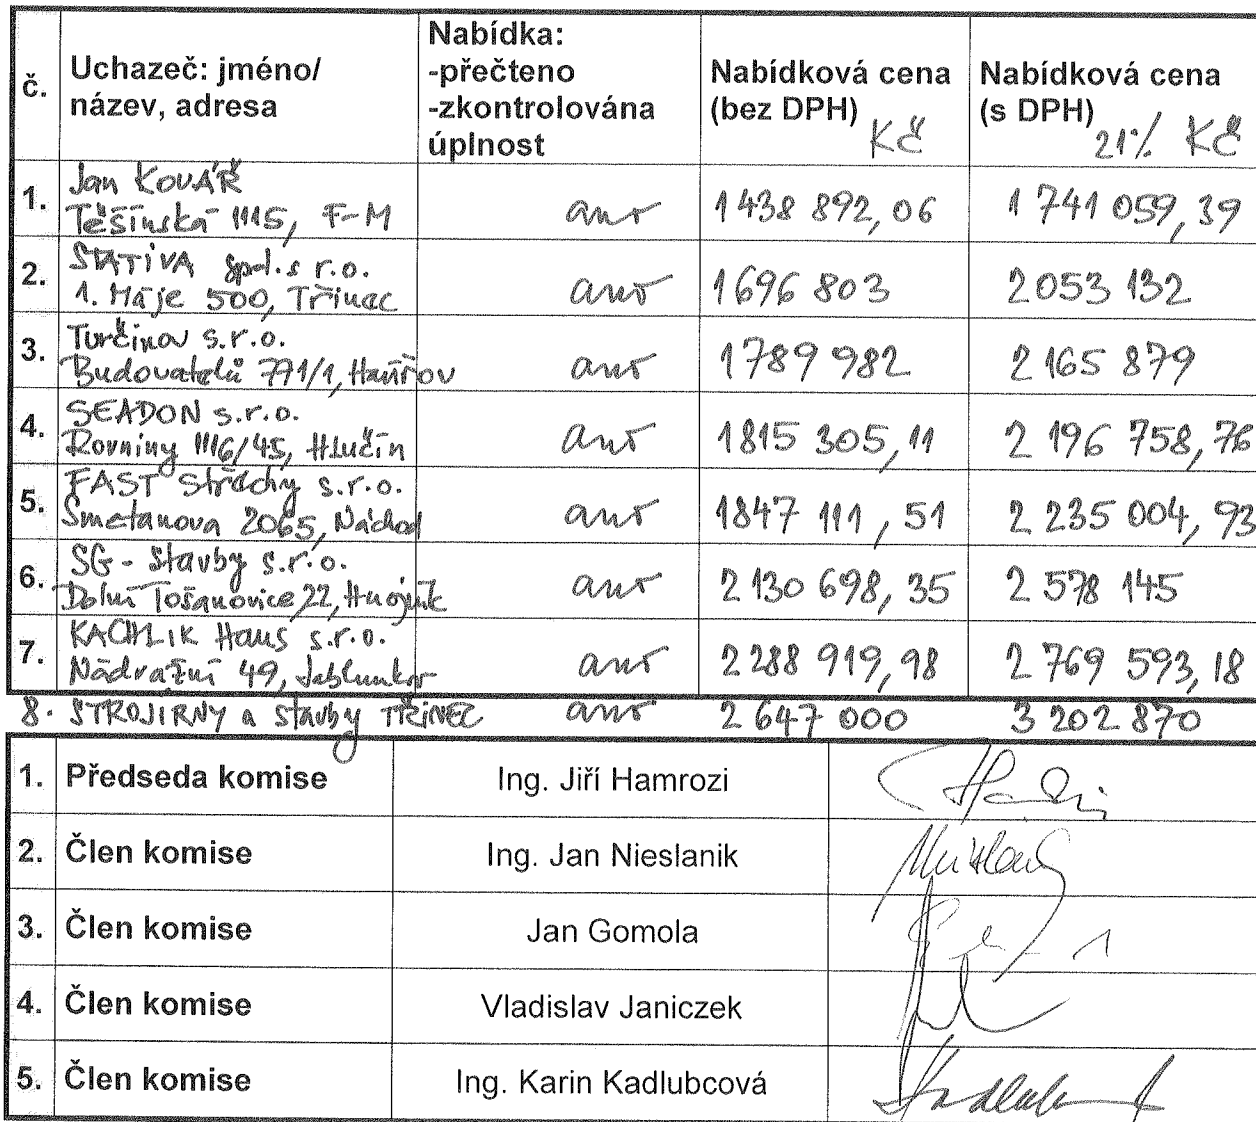 č. Uchazeč: jméno/ název, adresa Nabídka: -přečteno -zkontrolována úplnost Nabídková cena (bez DPH) Kč Nabídková cena (s DPH) 21% Kč
1. Jan KOVÁŘ
Těšínská 1115, F-M ano 1 438 892,06 1 741 059,39
2. STATIVA spol. s r.o.
1. Máje 500, Třinec ano 1 696 803 2 053 132
3. Turčinov s.r.o.
Budovatelů 771/1, Havířov ano 1 789 982 2 165 879
4. SEADON s.r.o.
Rovniny 1116/45, Hlučín ano 1 815 305,11 2 196 758,76
5. FAST Střechy s.r.o.
Smetanova 2065, Náchod ano 1 847 111,51 2 235 004,93
6. SG - Stavby s.r.o.
Dolní Tošanovice 22, Hnojník ano 2 130 698,35 2 578 145
7. KACHLIK Haus s.r.o.
Nádražní 49, Jablunkov ano 2 288 919,98 2 769 593,18
8. STROJIRNY a stavby TŘINEC ano 2 647 000 3 202 870
1. Předseda komise Ing. Jiří Hamrozi
2. Člen komise Ing. Jan Nieslanik
3. Člen komise Jan Gomola
4. Člen komise Vladislav Janiczek
5. Člen komise Ing. Karin Kadlubcová